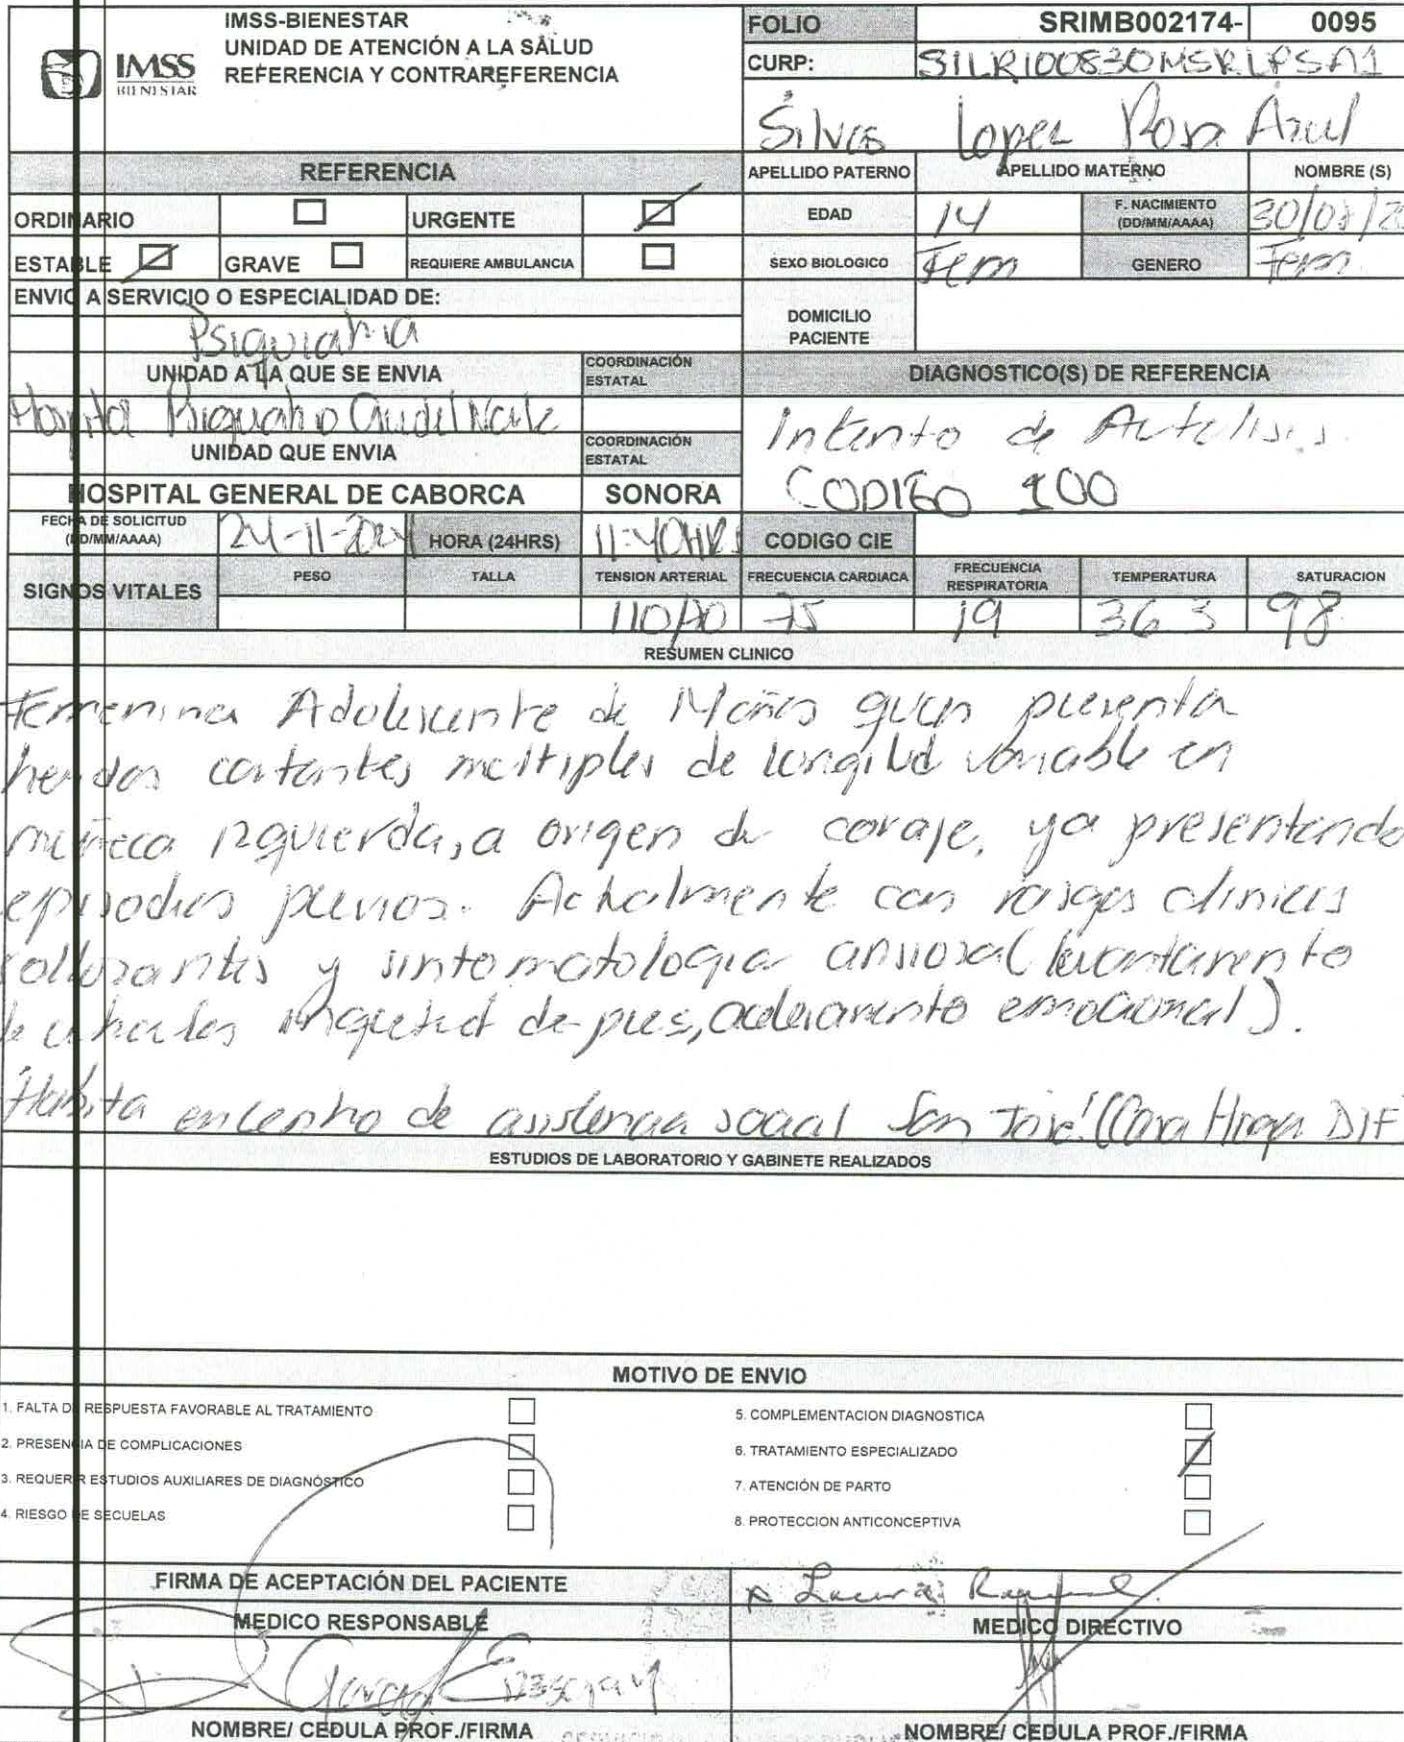 IMSS-BIENESTAR
UNIDAD DE ATENCIÓN A LA SALUD
REFERENCIA Y CONTRAREFERENCIA
IMSS
BIENESTAR
FOLIO SRIMB002174- 0095
CURP:
Silvas Lopez Rosa Azul
REFERENCIA
APELLIDO PATERNO APELLIDO MATERNO NOMBRE (S)
ORDINARIO URGENTE
EDAD 14 F. NACIMIENTO (DD/MM/AAAA) 30/08/20
ESTABLE GRAVE REQUIERE AMBULANCIA
SEXO BIOLOGICO Fem GENERO Fem
ENVIO A SERVICIO O ESPECIALIDAD DE:
Psiquiatria
DOMICILIO PACIENTE
UNIDAD A LA QUE SE ENVIA COORDINACIÓN ESTATAL
DIAGNOSTICO(S) DE REFERENCIA
Hospital Psiquiatrico Cruz del Norte
Intento de Autolisis.
UNIDAD QUE ENVIA COORDINACIÓN ESTATAL
CODIGO 100
HOSPITAL GENERAL DE CABORCA SONORA
FECHA DE SOLICITUD (DD/MM/AAAA) 24-11-2024 HORA (24HRS) 11:40HRS CODIGO CIE
SIGNOS VITALES PESO TALLA TENSION ARTERIAL FRECUENCIA CARDIACA FRECUENCIA RESPIRATORIA TEMPERATURA SATURACION
110/70 75 19 36.3 98
RESUMEN CLINICO
Femenina Adolescente de 14 años quien presenta
heridas cortantes multiples de longitud variable en
muñeca izquierda, a origen de coraje, ya presentando
episodios previos. Actualmente con rasgos clinicos
y sintomatologia ansiosa (levantamiento
inquietud de pies, aceleramiento emocional).
Habita en centro de asistencia social San José (Casa Hogar DIF
ESTUDIOS DE LABORATORIO Y GABINETE REALIZADOS
MOTIVO DE ENVIO
1. FALTA DE RESPUESTA FAVORABLE AL TRATAMIENTO
2. PRESENCIA DE COMPLICACIONES
3. REQUERIR ESTUDIOS AUXILIARES DE DIAGNÓSTICO
4. RIESGO DE SECUELAS
5. COMPLEMENTACION DIAGNOSTICA
6. TRATAMIENTO ESPECIALIZADO
7. ATENCIÓN DE PARTO
8. PROTECCION ANTICONCEPTIVA
FIRMA DE ACEPTACIÓN DEL PACIENTE
MEDICO RESPONSABLE MEDICO DIRECTIVO
NOMBRE/ CEDULA PROF./FIRMA NOMBRE/ CEDULA PROF./FIRMA